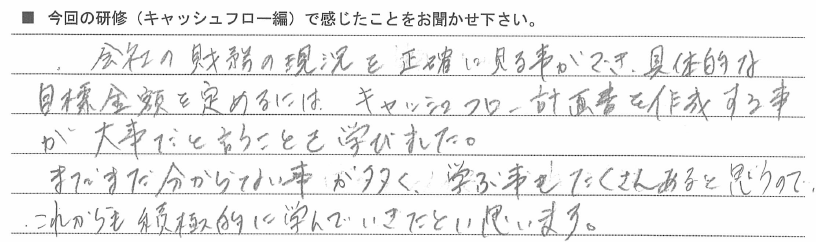 ■ 今回の研修（キャッシュフロー編）で感じたことをお聞かせ下さい。
会社の財務の現況を正確に見る事ができ、具体的な
目標金額を定めるには、キャッシュフロー計画書を作成する事
が大事だと言うことを学びました。
まだまだ分からない事が多く、学ぶ事もたくさんあると思うので、
これからも積極的に学んでいきたいと思います。